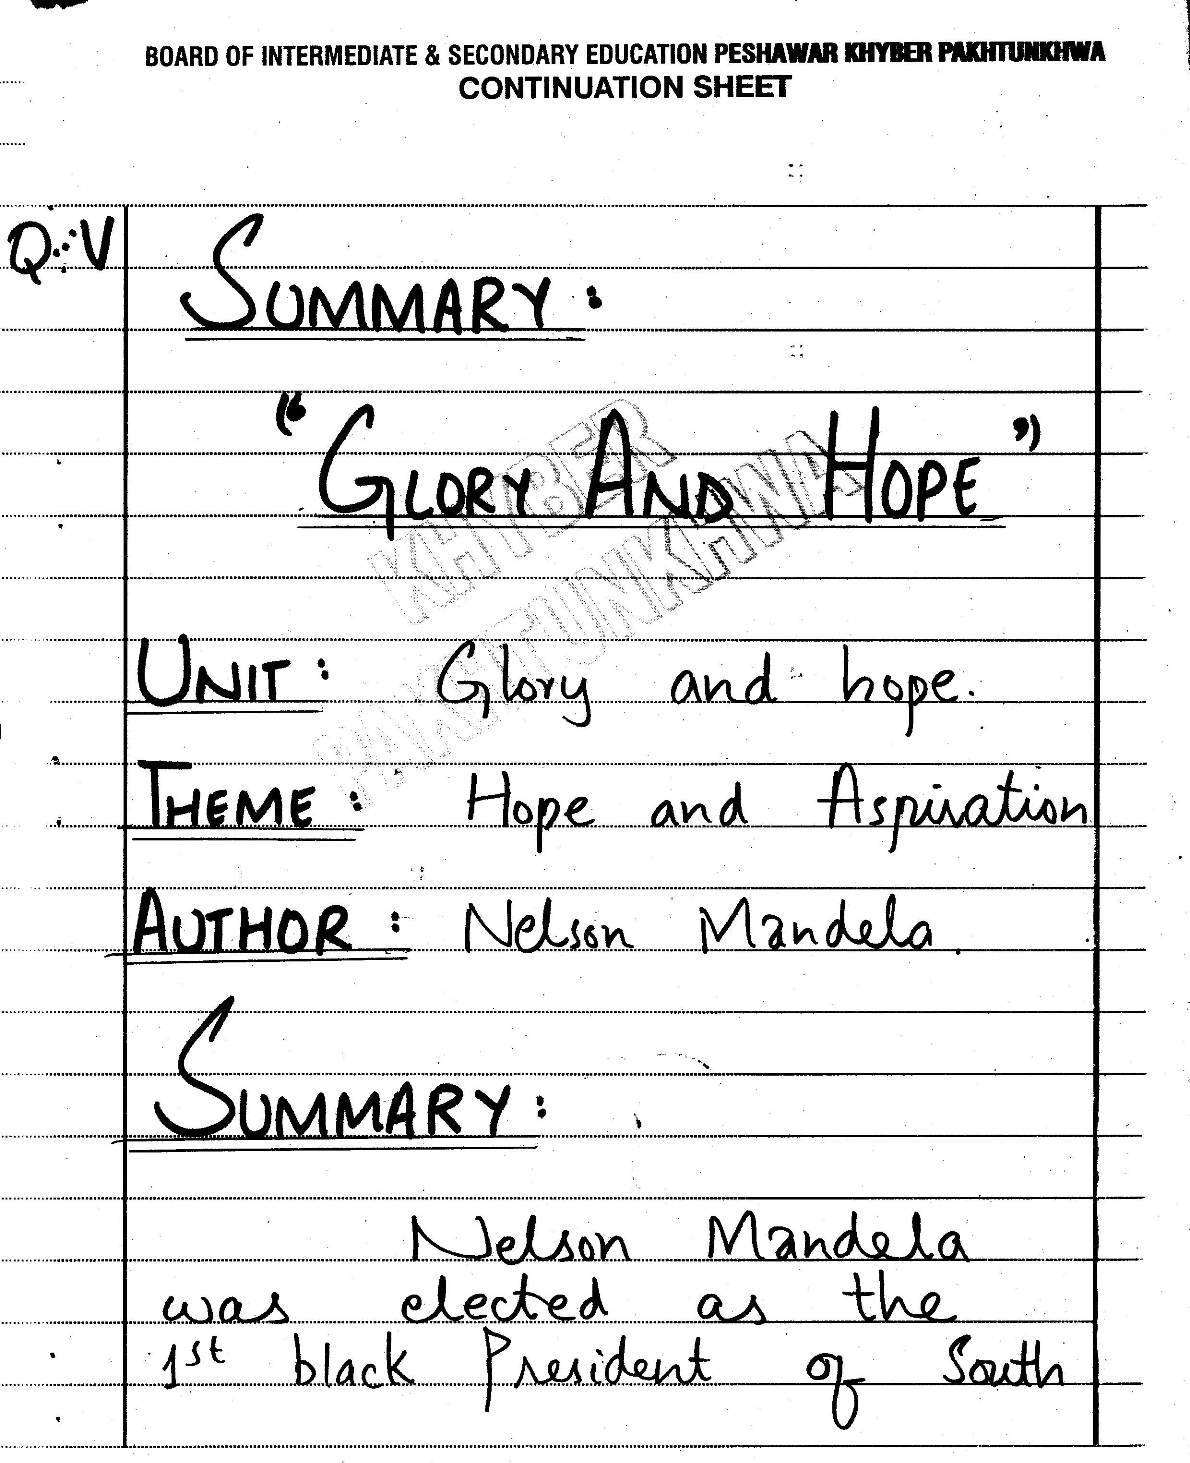 BOARD OF INTERMEDIATE & SECONDARY EDUCATION PESHAWAR KHYBER PAKHTUNKHWA
CONTINUATION SHEET
Q:V
SUMMARY:
"GLORY AND HOPE"
KHYBER
PAKHTUNKHWA
UNIT: Glory and hope.
THEME: Hope and Aspiration
AUTHOR: Nelson Mandela.
SUMMARY:
Nelson Mandela
was elected as the
1st black President of South